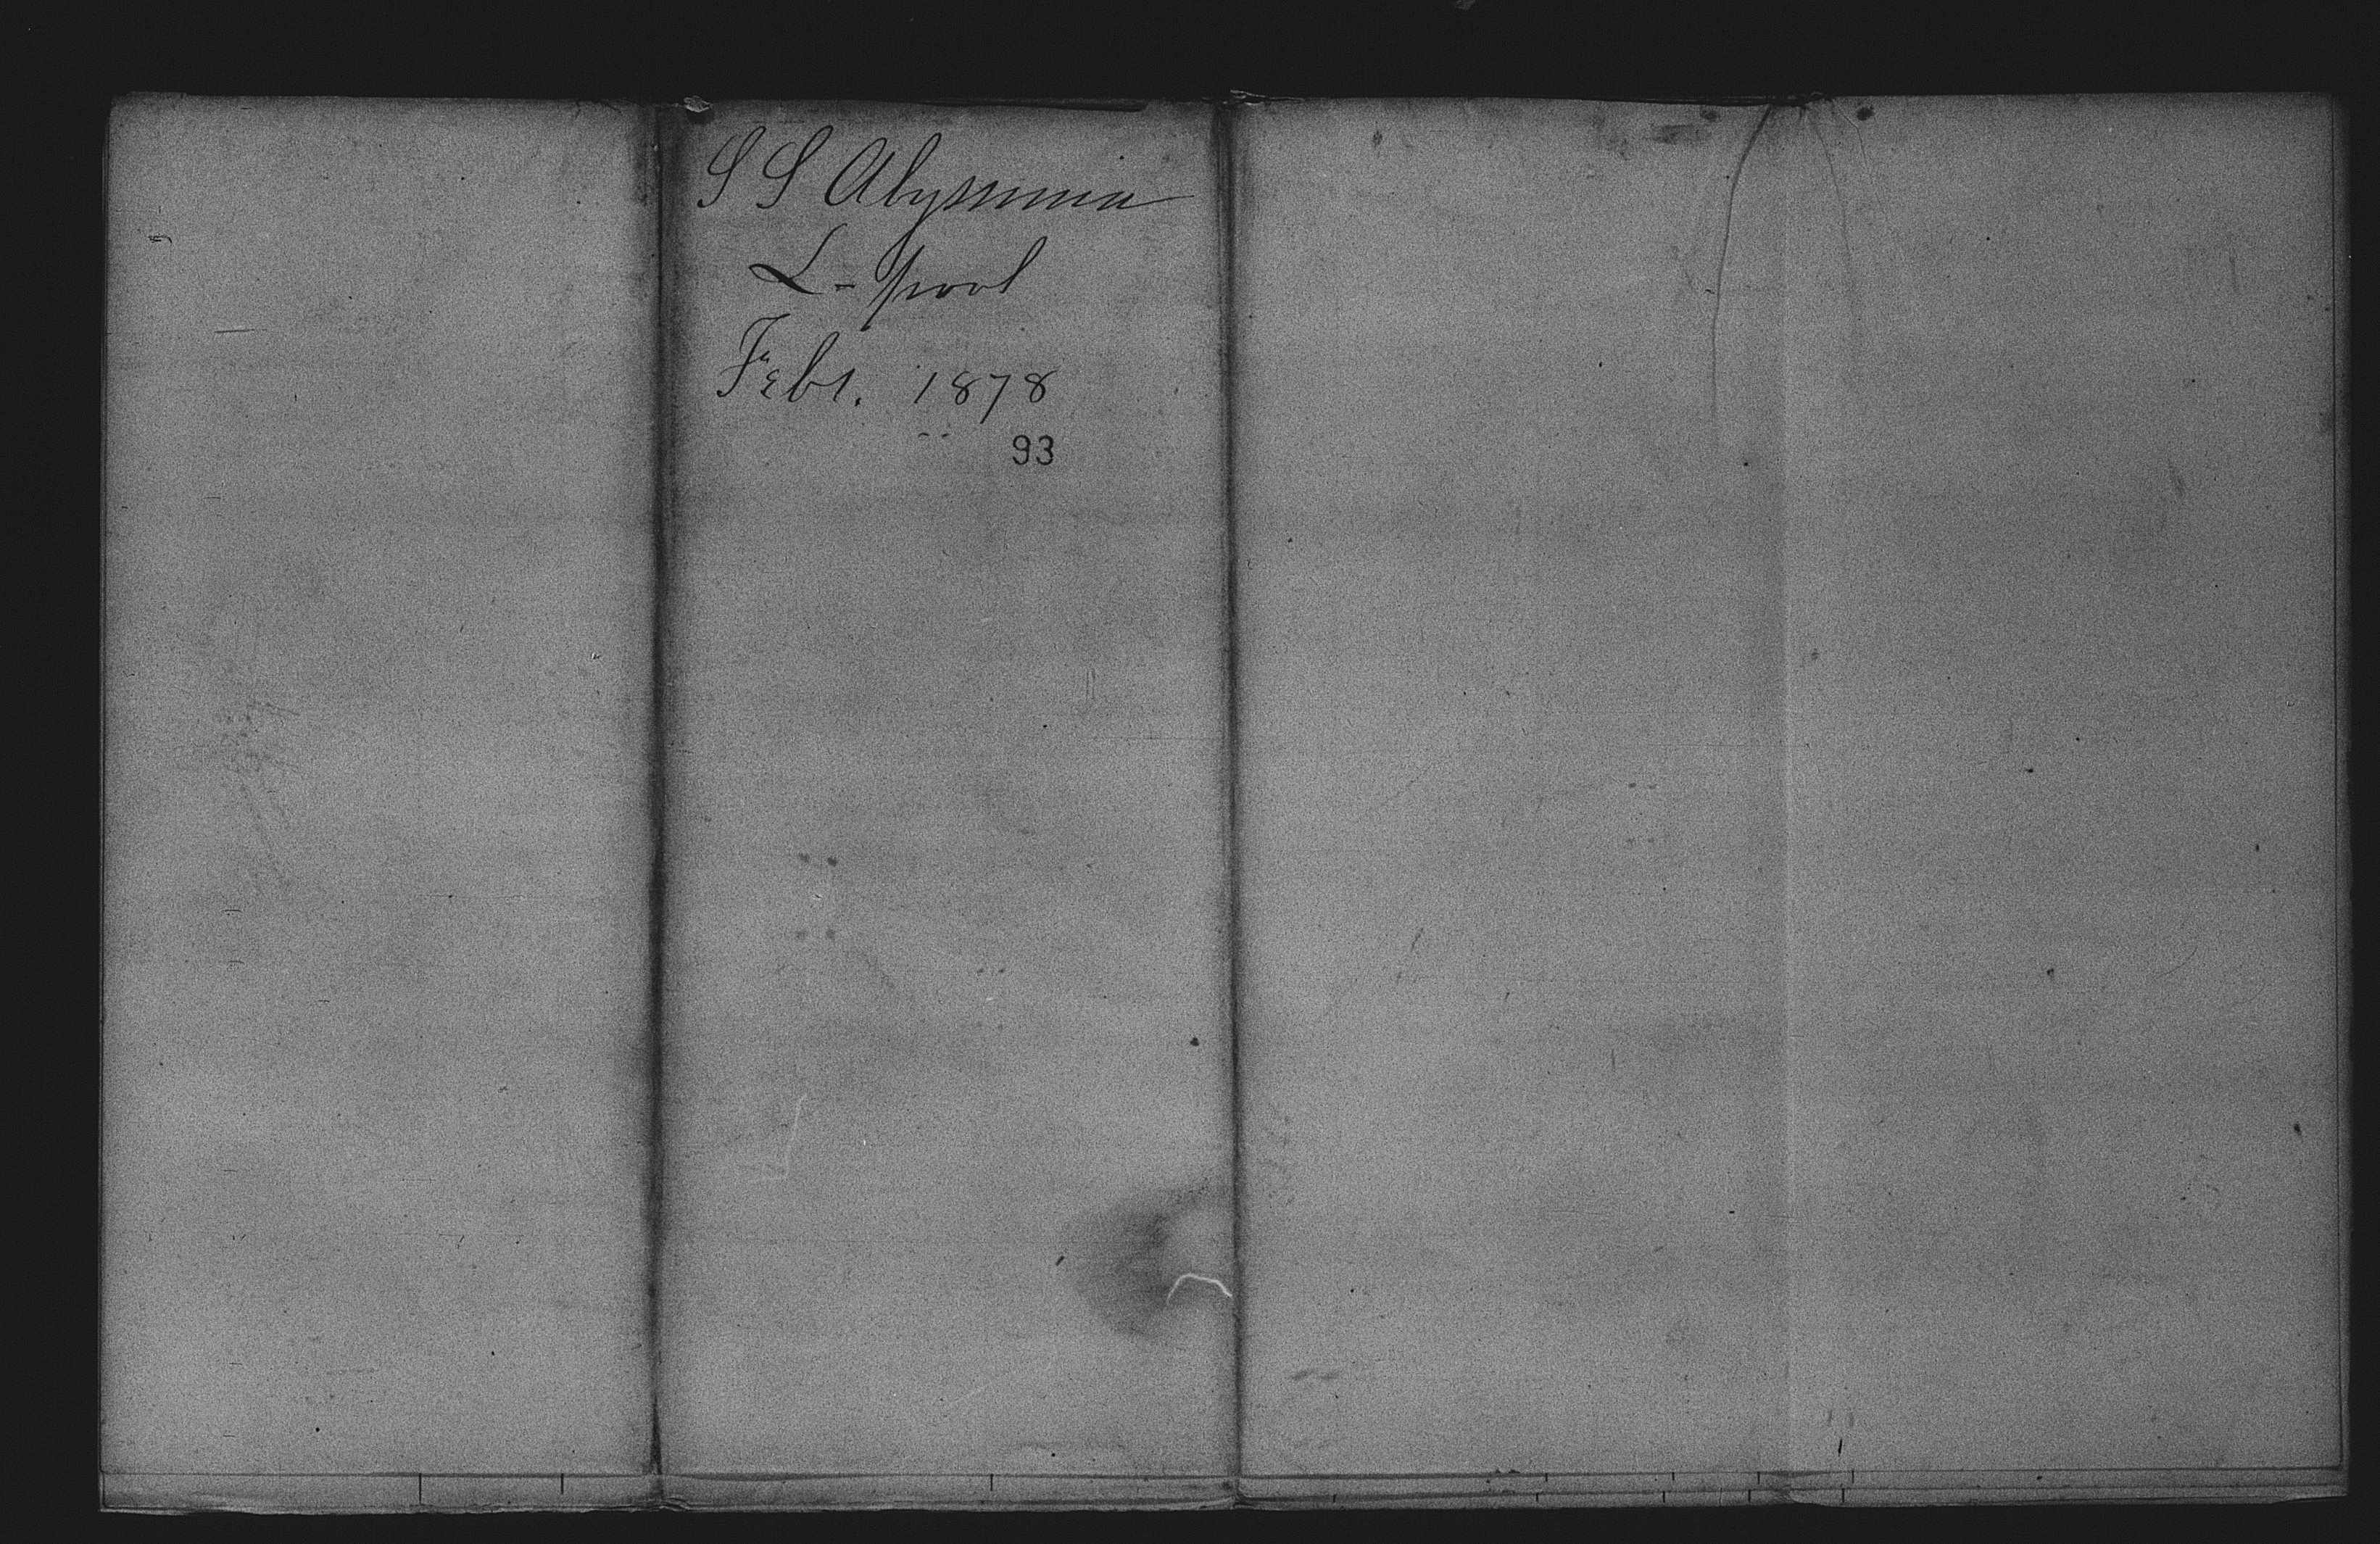 S S Abyssinia
L-pool
Febr. 1878
93